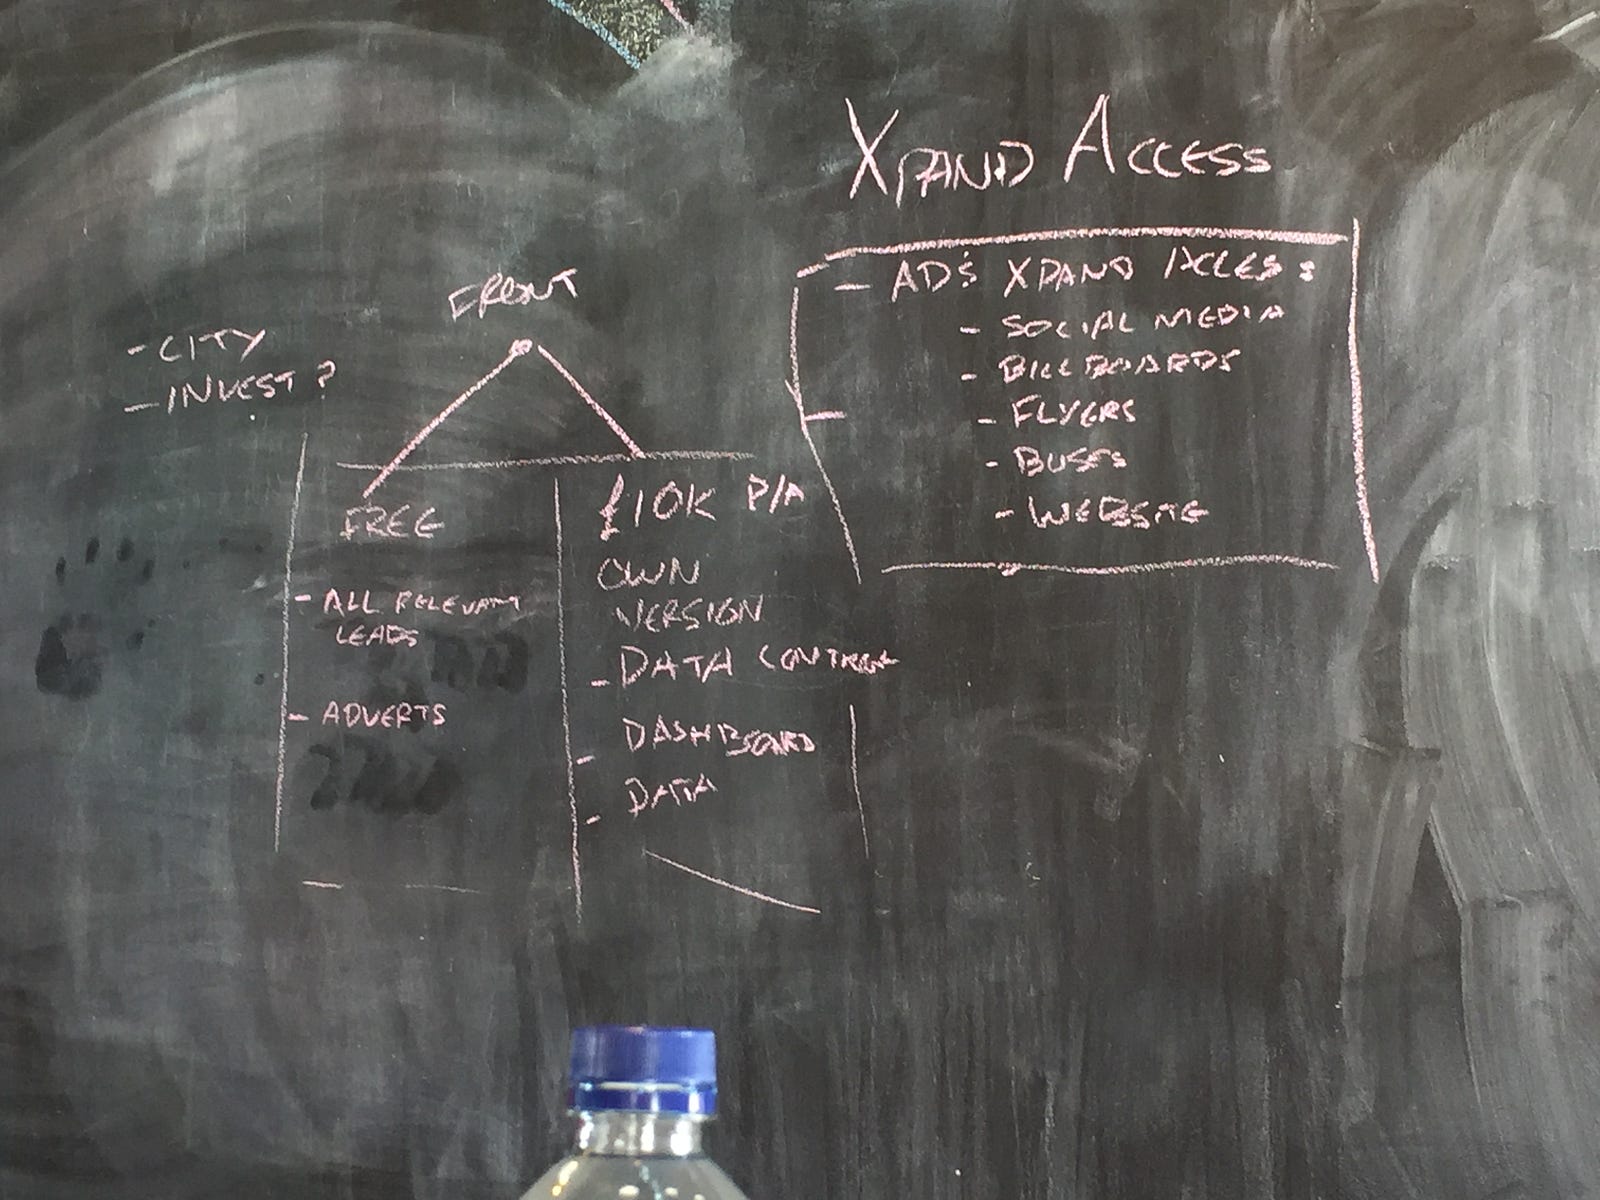 XPAND ACCESS
- AD'S XPAND ACCESS
- SOCIAL MEDIA
- BILLBOARDS
- FLYERS
- BUSES
- WEBSITE
FRONT
- CITY
- INVEST ?
FREE
- ALL RELEVANT
LEADS
- ADVERTS
£10K P/A
OWN
VERSION
- DATA CONTROL
- DASHBOARD
- DATA